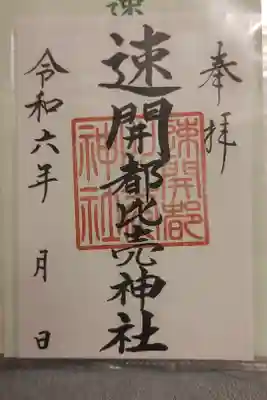 奉拝
速開都比売神社
令和六年 月 日
速開都
比売
神社
速